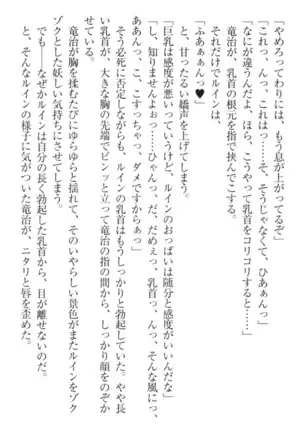 「やめろってわりには、もう息が上がってるぞ」
「これっ、んっ、これはっ……そ、そうじゃなくて、ひあぁんっ」
「なにが違うんだよ、ほら、こうやって乳首をコリコリすると……」
竜治が、乳首の根元を指で挟んでこする。
それだけでルインは、
「ふあぁぁんっ♥」
と、甘ったるい嬌声を上げてしまう。
「巨乳は感度が悪いっていうけど、ルインのおっぱいは随分と感度がいいんだな」
「し、知りませんよぉっ……ひゃんっ、だ、だめぇっ、乳首っ、んっ、そんな風にっ、
んあぁんっ、こ、こすっちゃっ、ダメですからぁっ」
そう必死に否定しながらも、ルインの乳首はもうしっかりと勃起していた。やや長
い乳首が、大きな胸の先端でピンッと立って竜治の指の間から、しっかり顔をのぞか
せている。
竜治が胸を揉むたびにゆらゆらと揺れて、そのいやらしい景色がまたルインをゾク
ゾクとした妖しい気持ちにさせてしまう。
でも――なぜかルインは自分の長く勃起した乳首から、目が離せないのだ。
と、そんなルインの様子に気がついた竜治が、ニタリと唇を歪めた。